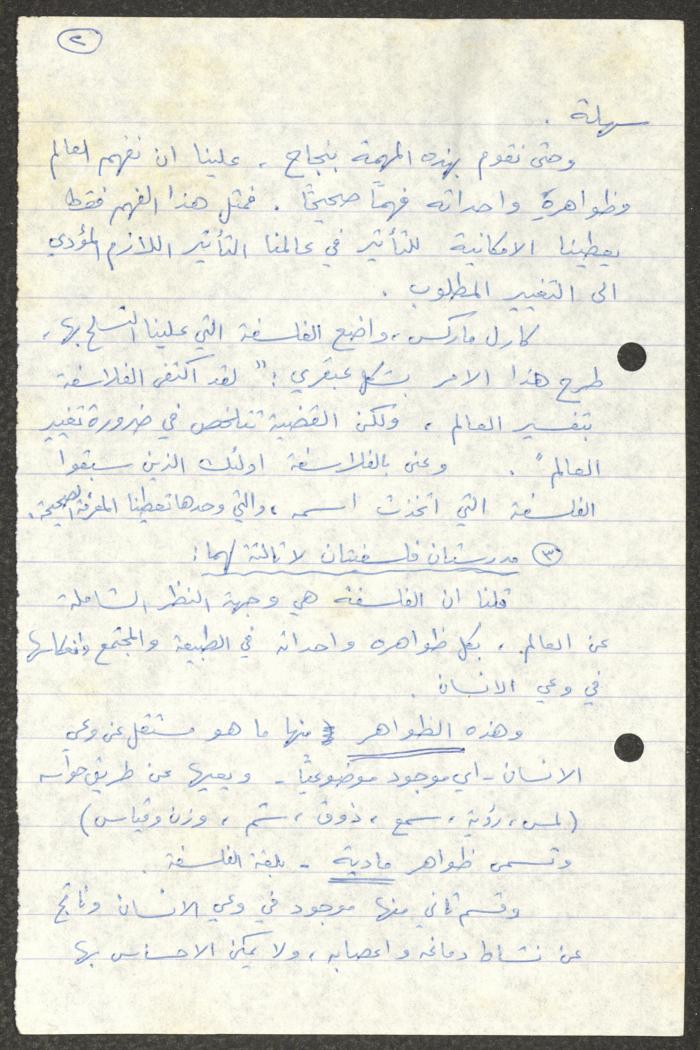 ٢
سهلة .
وحتى نقوم بهذه المهمة بنجاح ، علينا ان نفهم العالم
وظواهره واحداثه فهماً صحيحاً . فمثل هذا الفهم فقط
يعطينا الامكانية للتأثير في عالمنا التأثير اللازم المؤدي
الى التغيير المطلوب .
كارل ماركس ، واضع الفلسفة التي علينا التسلح بها ،
طرح هذا الامر بشكل عبقري : " لقد اكتفى الفلاسفة
بتفسير العالم ، ولكن القضية تتلخص في ضرورة تغيير
العالم " . وعنى بالفلاسفة اولئك الذين سبقوا
الفلسفة التي اتخذت اسمه ، والتي وحدها تعطينا المعرفة الصحيحة .
٣ مدرستان فلسفيتان لا ثالثة لهما :
قلنا ان الفلسفة هي وجهة النظر الشاملة
عن العالم ، بكل ظواهره واحداثه في الطبيعة والمجتمع وانعكاسها
في وعي الانسان .
وهذه الظواهر منها ما هو مستقل عن وعي
الانسان - اي موجود موضوعياً - ويعيها عن طريق حواسه
(لمس ، رؤية ، سمع ، ذوق ، شم ، وزن وقياس)
وتسمى ظواهر مادية - بلغة الفلسفة .
وقسم ثاني منها موجود في وعي الانسان وناتج
عن نشاط دماغه واعصابه ، ولا يمكن الاحساس بها